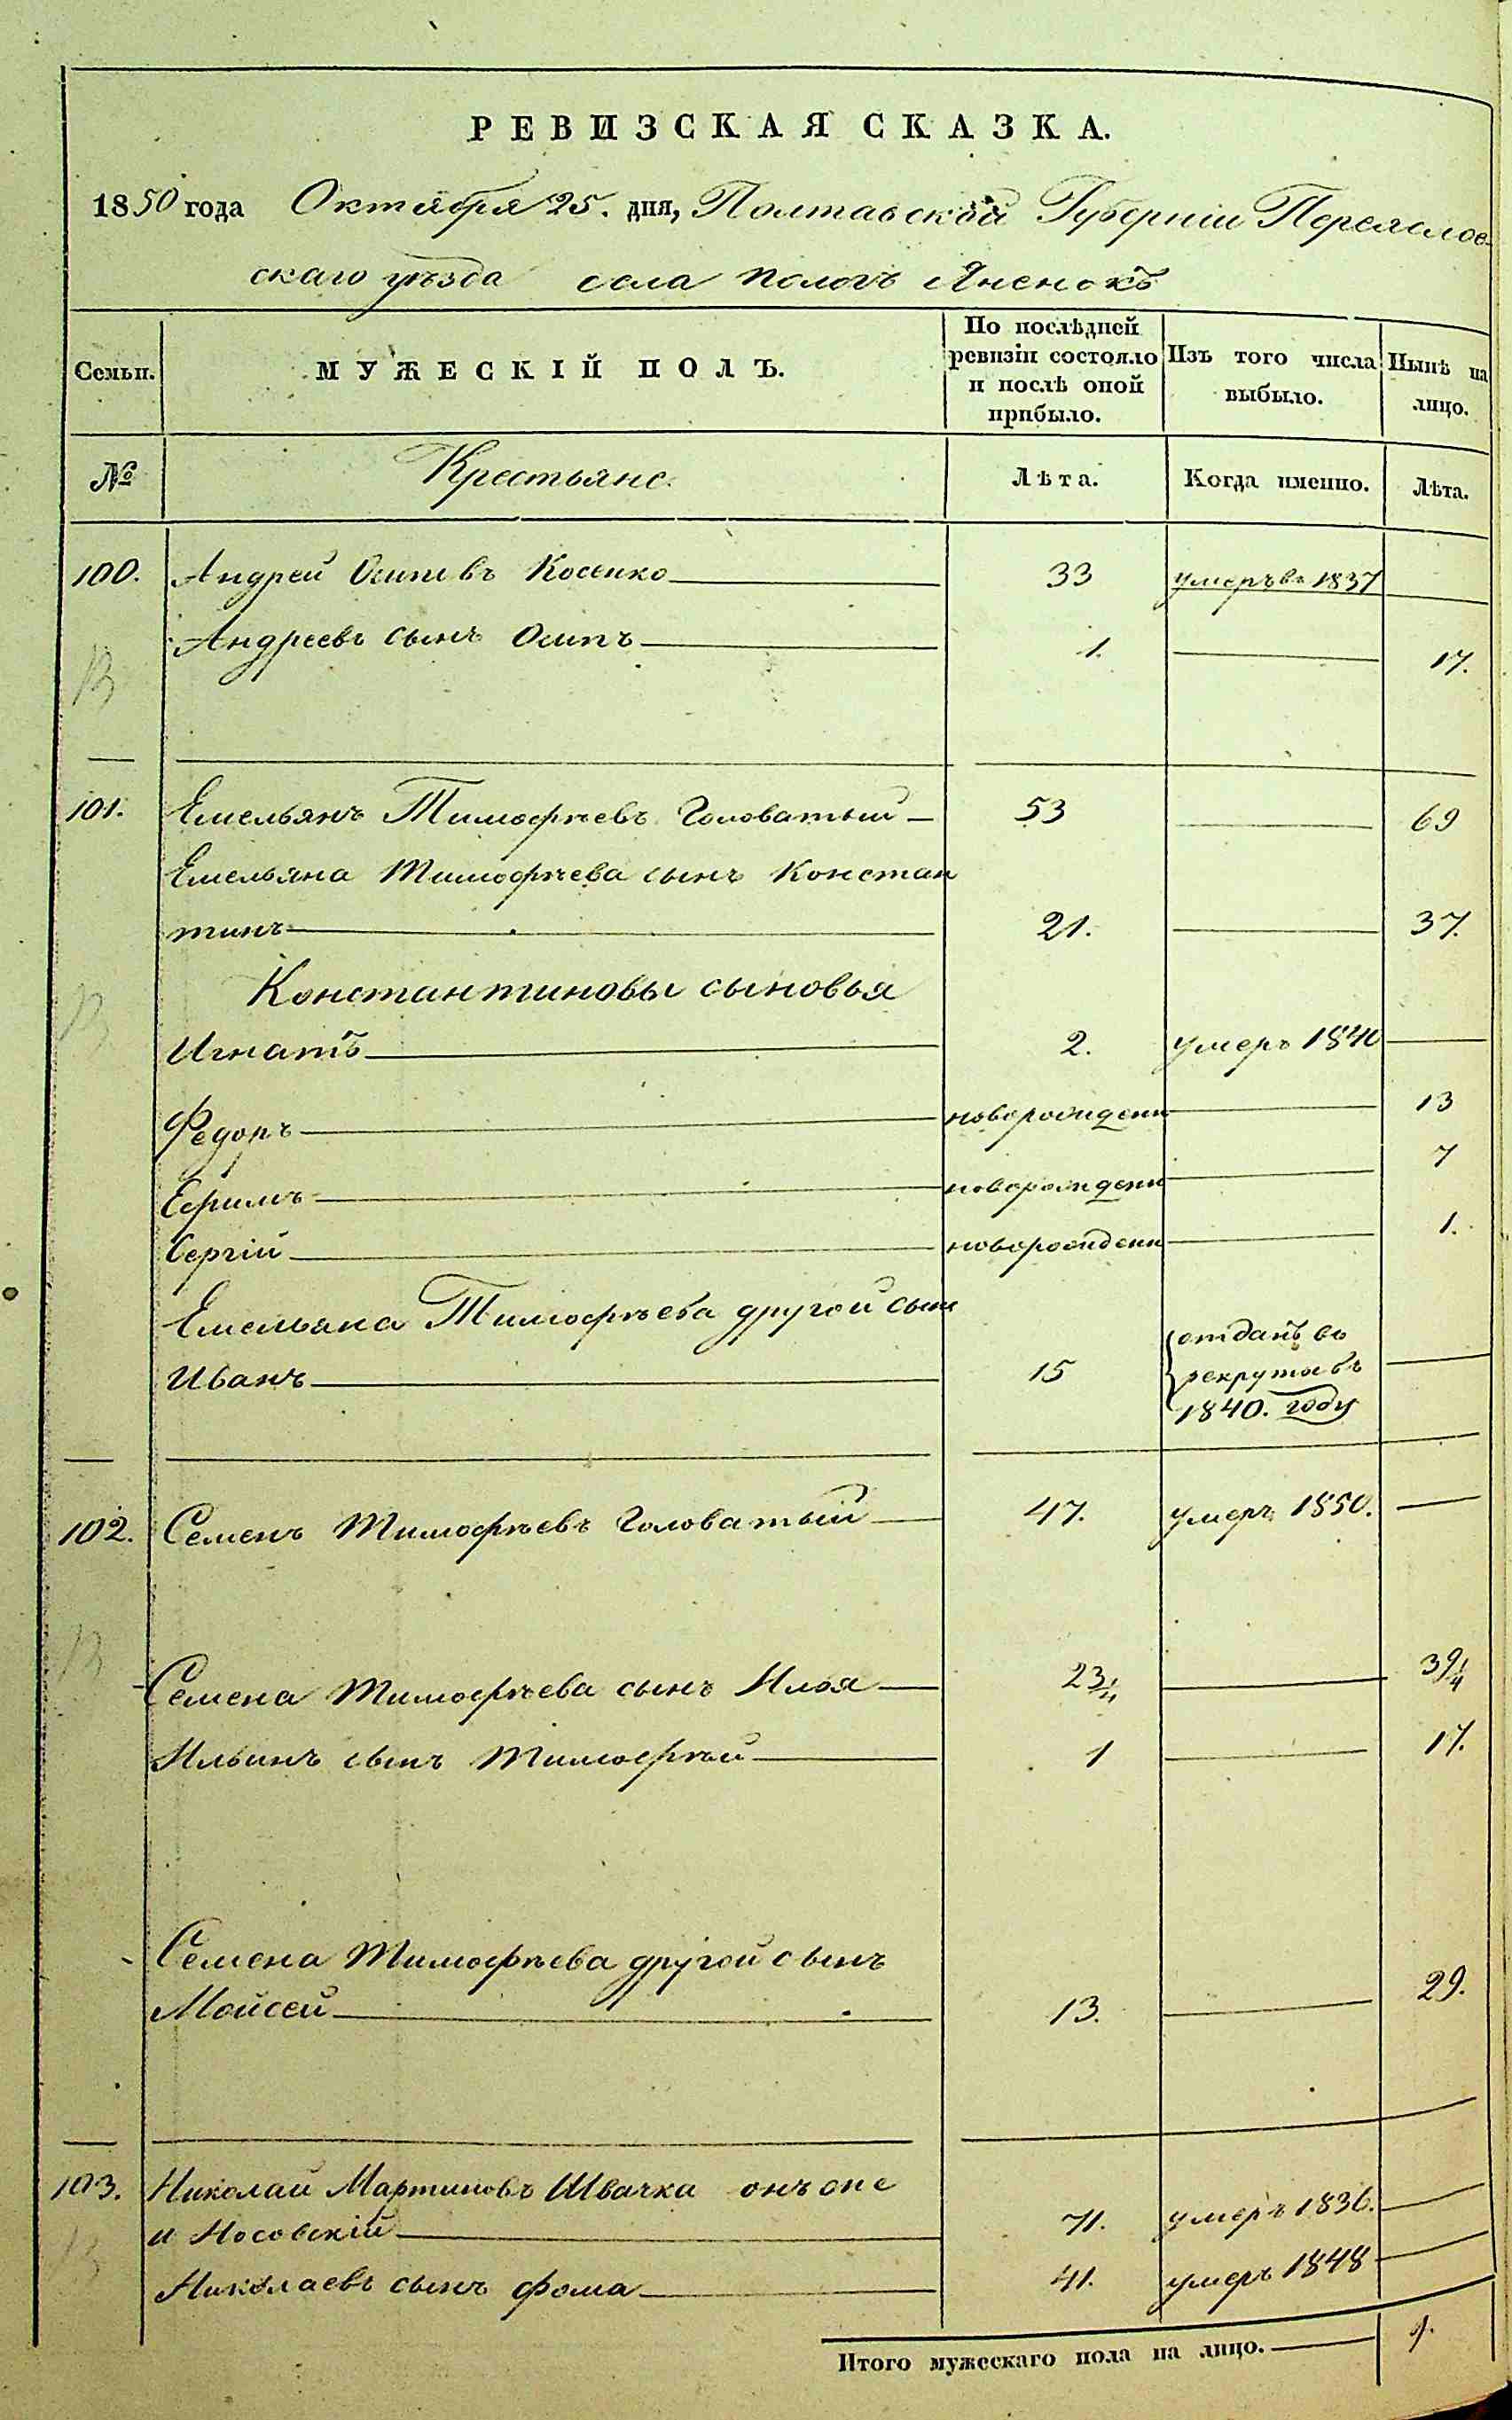 РЕВИЗСКАЯ СКАЗКА.
1850 года Октября 25. дня, Полтавской Губерніи Переяслов-
скаго уѣзда села Пологъ Яненокъ
Семьи.
МУЖЕСКІЙ ПОЛЪ.
По послѣдней ревизіи состояло и послѣ оной прибыло.
Изъ того числа выбыло.
Нынѣ на лицо.
№ Крестьяне. Лѣта. Когда именно. Лѣта.
100. Андрей Осиповъ Косенко 33 умеръ въ 1837
Андреевъ сынъ Осипъ 1. 17.
101. Емельянъ Тимофѣевъ Головатый 53 69
Емельяна Тимофѣева сынъ Констан
тинъ 21. 37.
Константиновы сыновья
Игнатъ 2. умеръ 1840
Федоръ новорожденн 13
Ефимъ новорожденн 7
Сергій новорожденн 1.
Емельяна Тимофѣева другой сынъ
Иванъ 15 отданъ въ
рекруты въ
1840. году
102. Семенъ Тимофѣевъ Головатый 47. умеръ 1850.
Семена Тимофѣева сынъ Илья 23 1/4 39 1/4
Ильинъ сынъ Тимофѣй 1 17.
Семена Тимофѣева другой сынъ
Мойсей 13. 29.
103. Николай Мартиновъ Швачка онъ же
и Носовскій 71. умеръ 1836.
Николаевъ сынъ Фома 41. умеръ 1848
Итого мужескаго пола на лицо. 9.